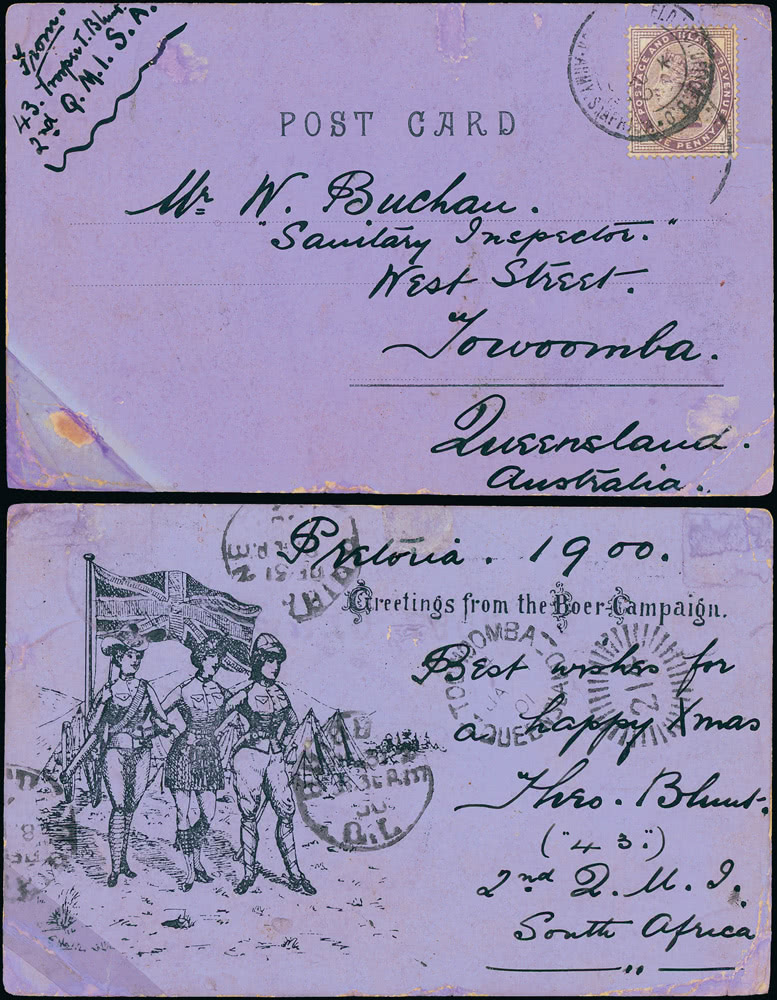 From.
43. Trooper T. Blunt.
2nd Q. M. I. S. A.
POST CARD
POSTAGE AND INLAND REVENUE
ONE PENNY
Mr W. Buchan.
"Sanitary Inspector."
West Street.
Towoomba.
Queensland.
Australia.
Pretoria. 1900.
Greetings from the Boer-Campaign.
TOOWOOMBA
JA
01
QUEENSLAND
214
Best wishes for
a happy Xmas
Theo. Blunt.
("43.")
2nd Q. M. I.
South Africa